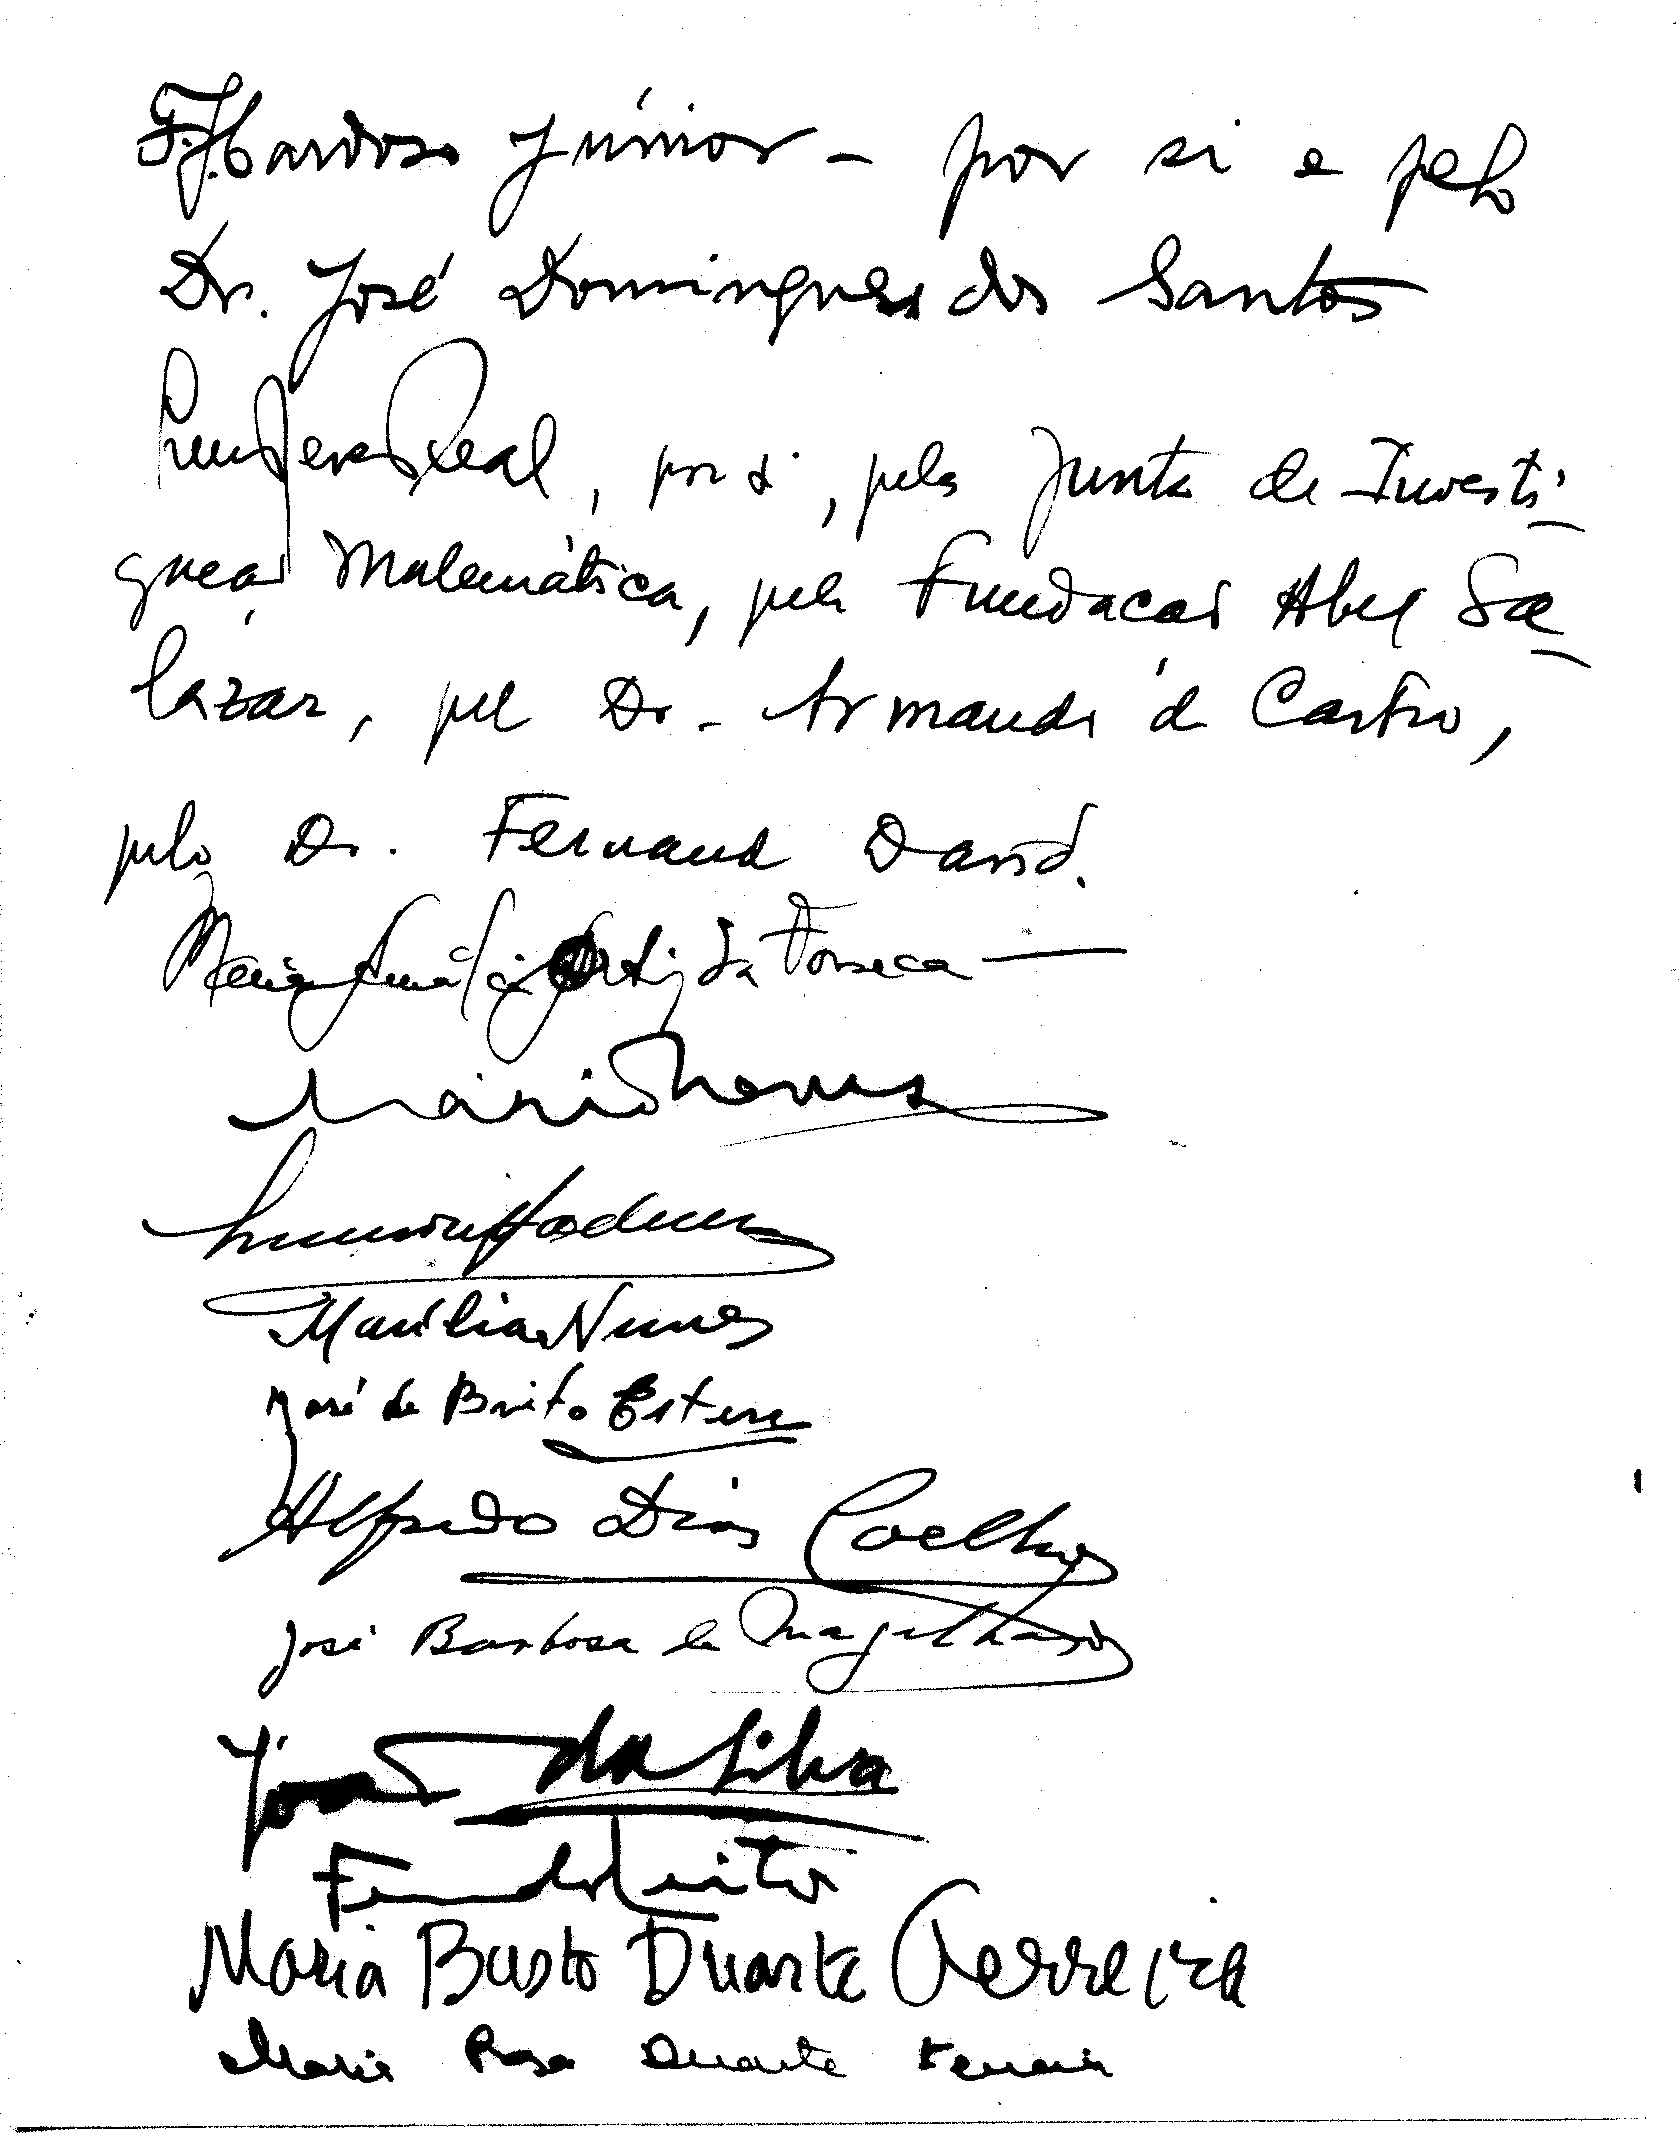 F. J. Cardoso Júnior — por si e pelo
Dr. José Domingues dos Santos
Luis Neves Real, por si, pela Junta de Investi-
gação Matemática, pela Fundação Abel Sa-
lazar, pelo Dr. Armando de Castro,
pelo Dr. Fernando David.
Maria Amália Ortiz da Fonseca —
Mário Neves
Marília Nunes
José de Brito Esteves
Alfredo Dias Coelho
José Barbosa de Magalhães
João da Silva
Fernando Leitor
Maria Busto Duarte Ferreira
Maria Rosa Duarte Ferreira